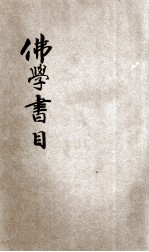 佛學書目